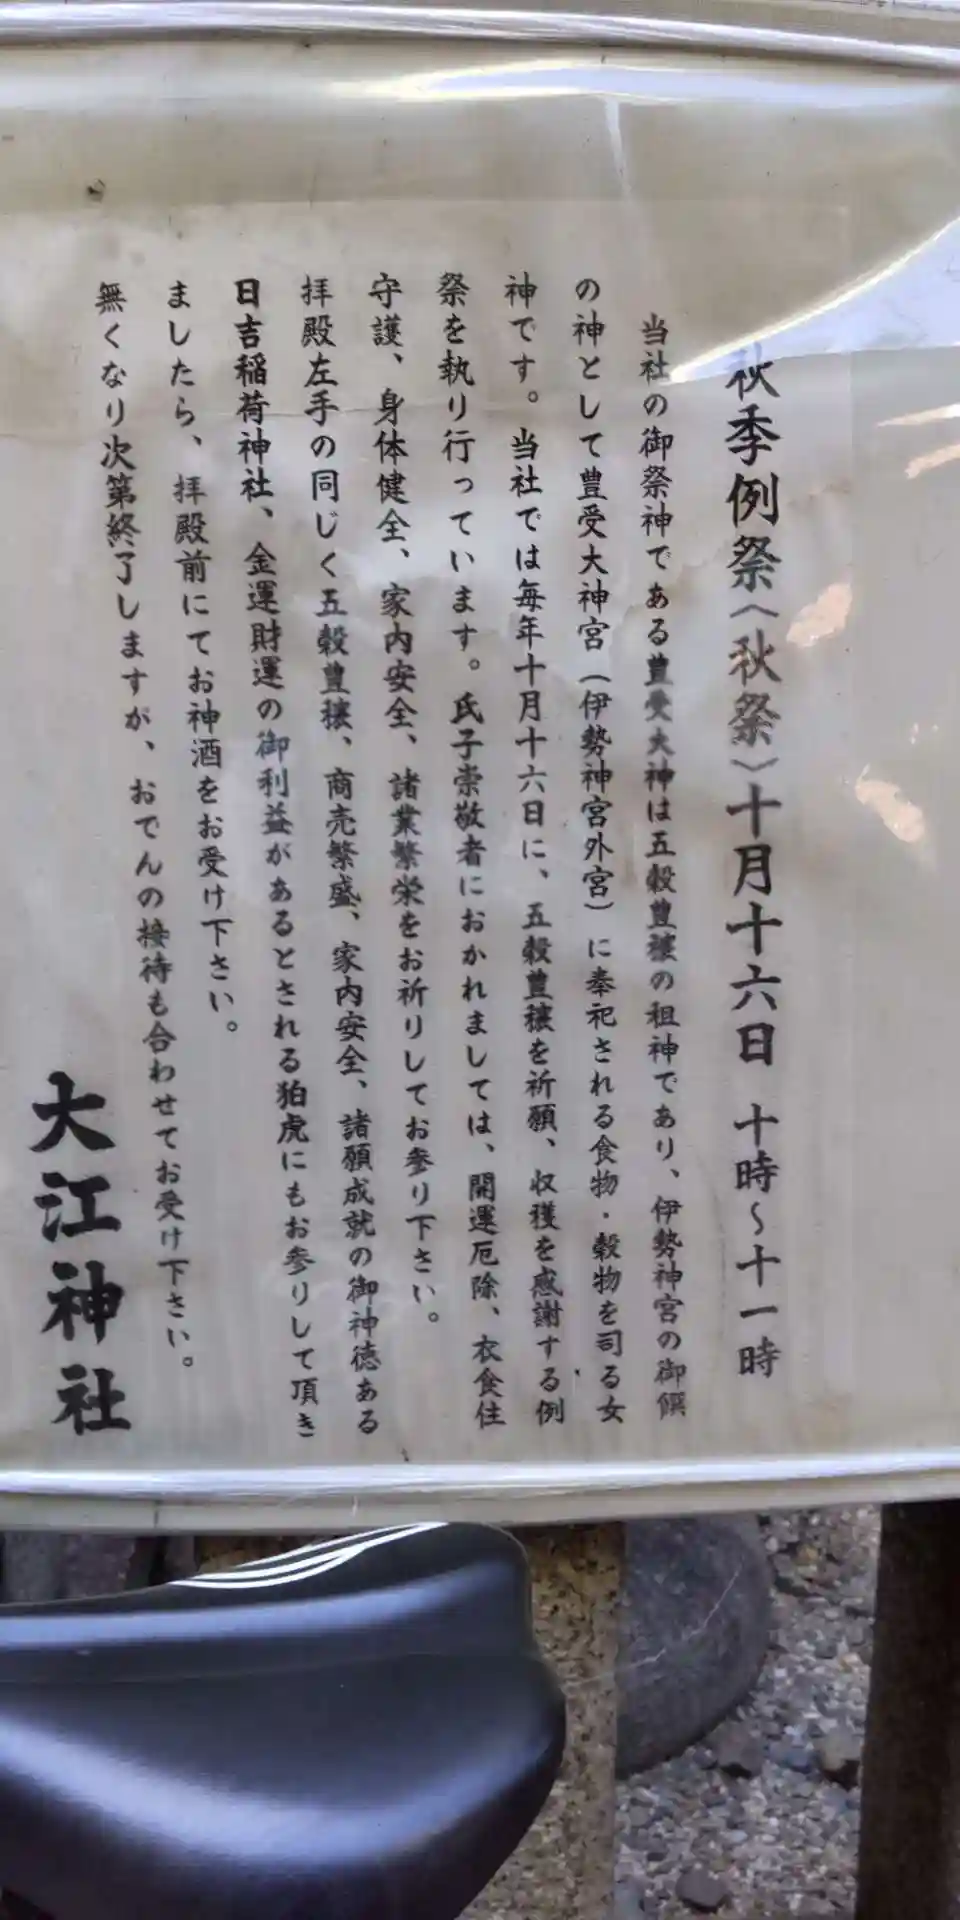 秋季例祭〈秋祭〉十月十六日　十時～十一時
当社の御祭神である豊受大神は五穀豊穣の祖神であり、伊勢神宮の御饌
の神として豊受大神宮（伊勢神宮外宮）に奉祀される食物・穀物を司る女
神です。当社では毎年十月十六日に、五穀豊穣を祈願、収穫を感謝する例
祭を執り行っています。氏子崇敬者におかれましては、開運厄除、衣食住
守護、身体健全、家内安全、諸業繁栄をお祈りしてお参り下さい。
拝殿左手の同じく五穀豊穣、商売繁盛、家内安全、諸願成就の御神徳ある
日吉稲荷神社、金運財運の御利益があるとされる狛虎にもお参りして頂き
ましたら、拝殿前にてお神酒をお受け下さい。
無くなり次第終了しますが、おでんの接待も合わせてお受け下さい。
大江神社